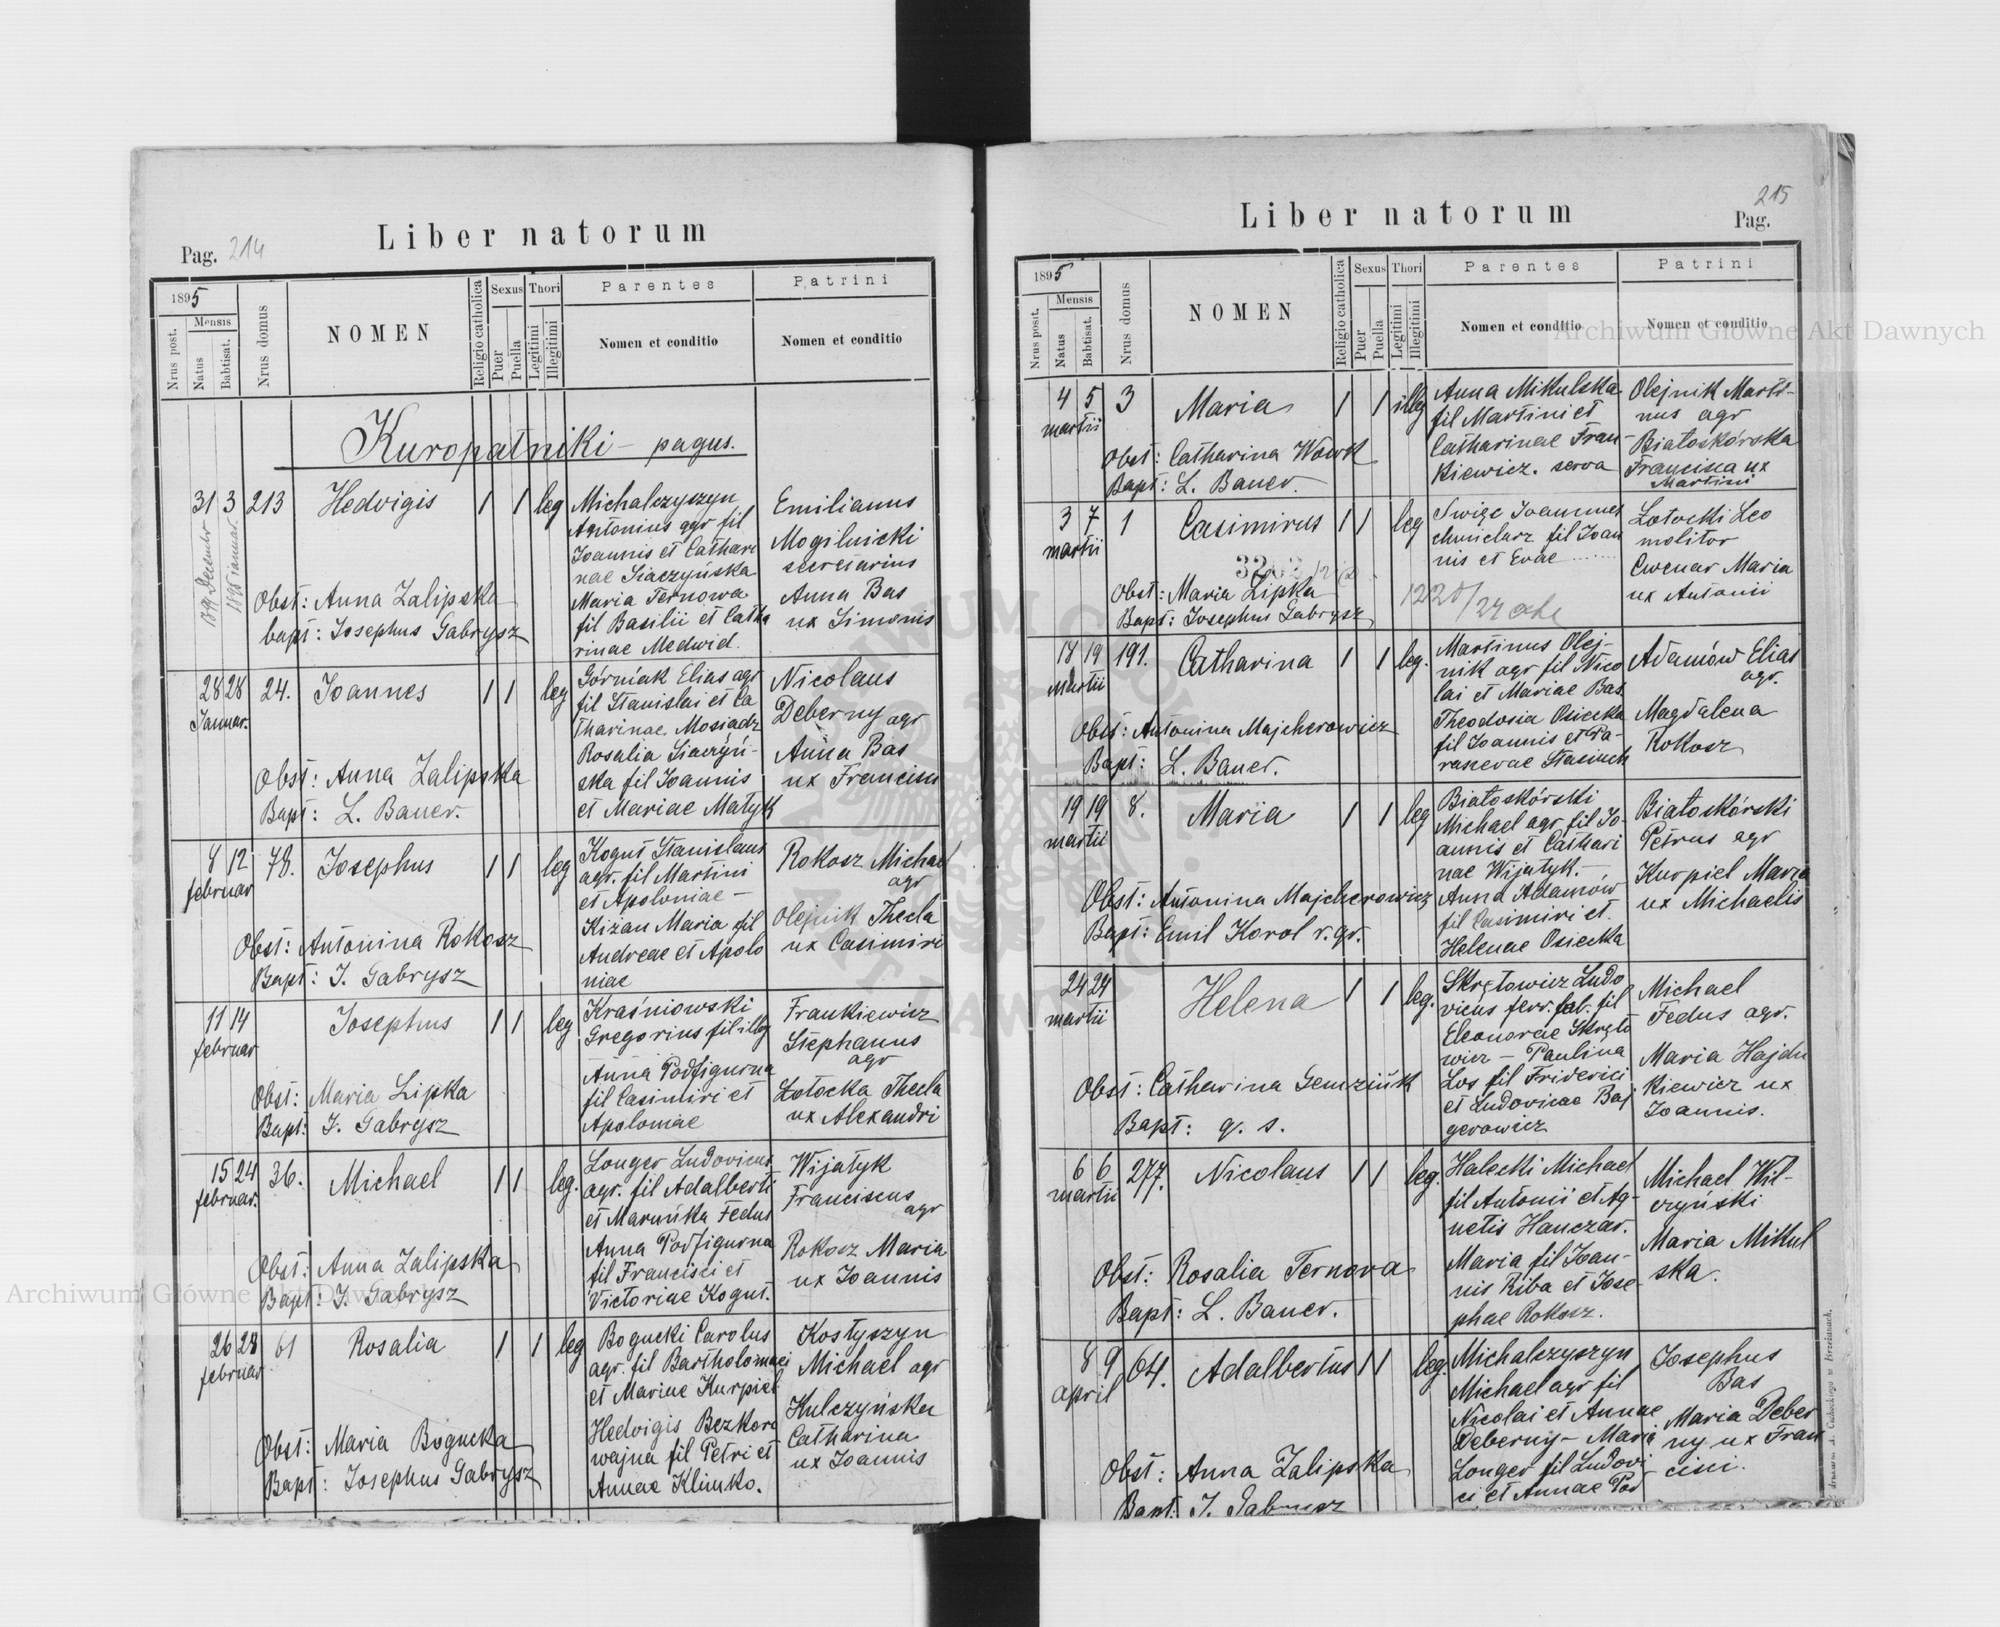 Pag. 214
Liber natorum
1895
Mensis
Nrus post.
Natus
Babtisat.
Nrus domus
NOMEN
Religio catholica
Sexus
Puer
Puella
Thori
Legitimi
Illegitimi
Parentes
Nomen et conditio
Patrini
Nomen et conditio
Kuropatniki – pagus.
31 3 213 Hedvigis 1 1 leg
1894 December
1895 januar.
Michalczyszyn
Antonius agr fil
Joannis et Cathari
nae Siaczyńska
Maria Ternowa
fil Basilii et Catha
rinae Medwid.
Emilianus
Mogilnicki
secretarius
Anna Bas
ux Simonis
Obst: Anna Zalipska
bapt: Josephus Gabrysz
28 28 24. Joannes 1 1 leg
Januar.
Górniak Elias agr
fil Stanislai et Ca
tharinae Mosiądz
Rosalia Siaczyń-
ska fil Joannis
et Mariae Matyk
Nicolaus
Deberny agr
Anna Bas
ux Francisci
Obst: Anna Zalipska
Bapt: L. Bauer.
8 12 78. Josephus 1 1 leg
februar
Kogut Stanislaus
agr. fil Martini
et Apoloniae –
Kiżan Maria fil
Andreae et Apolo
niae
Rokosz Michael
agr
Olejnik Thecla
ux Casimiri
Obst: Antonina Rokosz
Bapt: J. Gabrysz
11 14 Josephus 1 1 leg
februar
Kraśniowski
Gregorius fil illeg
Anna Podfigurna
fil Casimiri et
Apoloniae
Frankiewicz
Stephanus
agr
Łotocka Thecla
ux Alexandri
Obst: Maria Lipka
Bapt: J. Gabrysz
15 24 36. Michael 1 1 leg.
februar.
Longer Ludovicus
agr. fil Adalberti
et Maruńka Fedus
Anna Podfigurna
fil Francisci et
Victoriae Kogut.
Wijatyk
Franciscus
agr
Rokosz Maria
ux Joannis
Obst: Anna Zalipska
Bapt: J. Gabrysz
26 28 61 Rosalia 1 1 leg
februar
Bogucki Carolus
agr. fil Bartholomaei
et Mariae Kurpiel
Hedvigis Bezkoro
wajna fil Petri et
Annae Klimko.
Kostyszyn
Michael agr
Kulczyńska
Catharina
ux Joannis
Obst: Maria Bogucka
Bapt: Josephus Gabrysz
215
Liber natorum
Pag.
1895
Mensis
Nrus posit.
Natus
Babtisat.
Nrus domus
NOMEN
Religio catholica
Sexus
Puer
Puella
Thori
Legitimi
Illegitimi
Parentes
Nomen et conditio
Patrini
Nomen et conditio
4 5 3 Maria 1 1 illeg
martii
Anna Mikulska
fil Martini et
Catharinae Fran-
kiewicz. serva
Olejnik Marti-
nus agr
Białoskórska
Francisca ux
Martini
Obst: Catharina Wowk
Bapt: L. Bauer.
3 7 1 Casimirus 1 1 leg
martii
Swięc Joannes
chmielarz fil Joan
nis et Evae
Łotocki Leo
molitor
Cwenar Maria
ux Antonii
Obst: Maria Lipka
Bapt: Josephus Gabrysz
18 19 191. Catharina 1 1 leg.
Martii
Martinus Olej-
nik agr fil Nico
lai et Mariae Bas
Theodosia Osiecka
fil Joannis et Pa-
rascevae Stasiuch
Adamów Elias
agr.
Magdalena
Rokosz
Obst: Antonina Majcherowicz
Bapt: L. Bauer.
19 19 8. Maria 1 1 leg
martii
Białoskórski
Michael agr fil Jo
annis et Cathari
nae Wijatyk. –
Anna Adamów
fil Casimiri et
Helenae Osiecka
Białoskórski
Petrus agr
Kurpiel Maria
ux Michaelis
Obst: Antonina Majcherowicz
Bapt: Emil Korol r. gr.
24 24 Helena 1 1 leg.
martii
Skrętowicz Ludo
vicus ferr. fab. fil
Eleonorae Skręto
wicz – Paulina
Los fil Friderici
et Ludovicae Baj
gerowicz
Michael
Fedus agr.
Maria Hajdu
kiewicz ux
Joannis.
Obst: Catharina Gemziuk
Bapt: q. s.
6 6 277. Nicolaus 1 1 leg.
martii
Halecki Michael
fil Antonii et Ag-
netis Hanczar.
Maria fil Joan-
nis Riba et Jose-
phae Rokosz.
Michael Wil-
czyński
Maria Mikul
ska.
Obst: Rosalia Ternova
Bapt: L. Bauer.
8 9 64. Adalbertus 1 1 leg.
april
Michalczyszyn
Michael agr fil
Nicolai et Annae
Deberny – Maria
Longer fil Ludovi
ci et Annae Pod
Josephus
Bas
Maria Deber
ny ux Fran
cisci.
Obst: Anna Zalipska
Bapt: J. Gabrysz
Archiwum Główne Akt Dawnych
Archiwum Główne Akt Dawnych